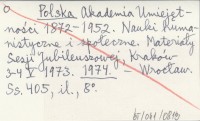 Polska Akademia Umiejęt-
ności 1872-1952. Nauki huma-
nistyczne i społeczne. Materiały
Sesji Jubileuszowej, Kraków
3-4 V 1973. 1974. - Wrocław.
Ss. 405, il., 8°.